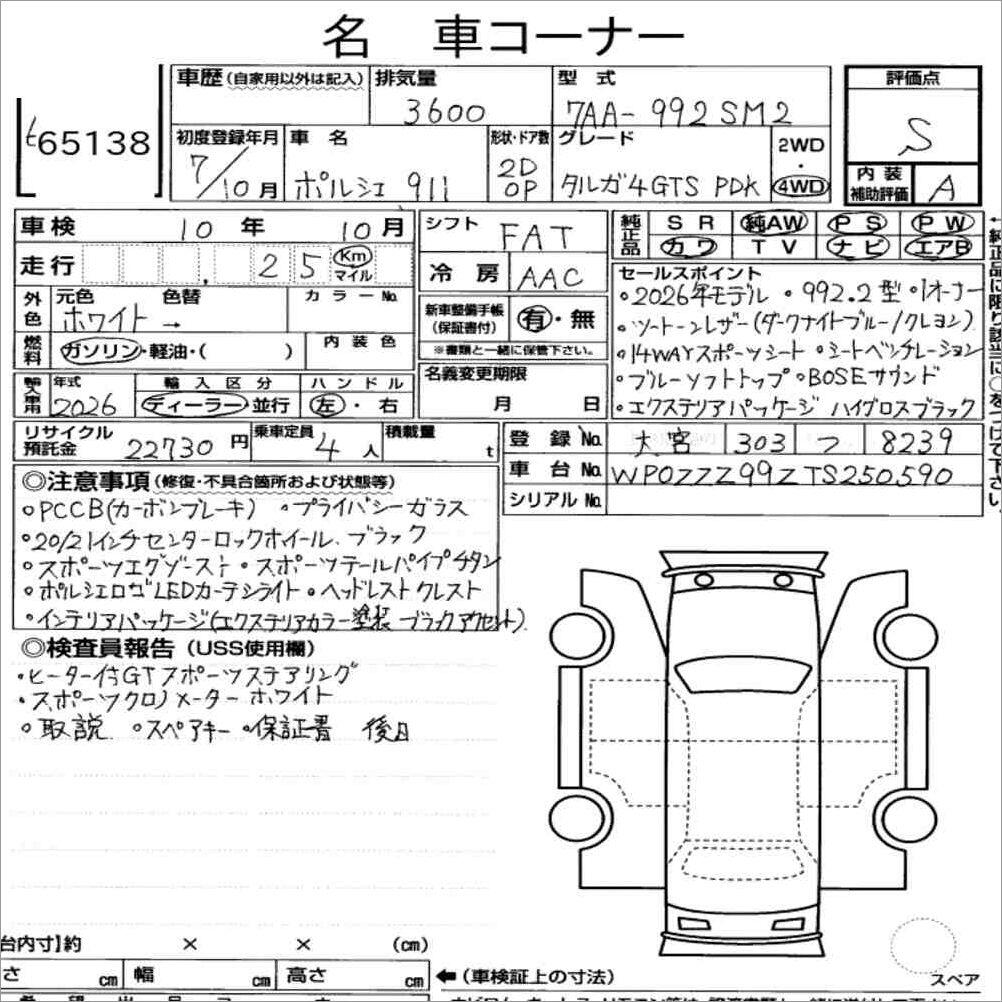 名 車コーナー
65138
車歴(自家用以外は記入) 排気量 3600
型式 7AA-992SM2
評価点 S
内装補助評価 A
初度登録年月 7/10月
車名 ポルシェ 911
形状・ドア数 2D OP
グレード タルガ4GTS PDK
2WD・4WD
車検 10年 10月
シフト FAT
純正品 SR 純AW PS PW
カワ TV ナビ エアB
走行 25 Km マイル
冷房 AAC
外色 元色 ホワイト → 色替 カラーNo.
新車整備手帳(保証書付) 有・無
※書類と一緒に保管下さい。
燃料 ガソリン・軽油・( ) 内装色
輸入車用 年式 2026 輸入区分 ディーラー・並行 ハンドル 左・右
名義変更期限 月 日
セールスポイント
。2026年モデル 。992.2型 。1オーナー
。ツートーンレザー(ダークナイトブルー/クレヨン)
。14WAYスポーツシート 。シートベンチレーション
。ブルーソフトトップ 。BOSEサウンド
。エクステリアパッケージ ハイグロスブラック
←純正品に限り該当に○をつけて下さい。
リサイクル預託金 22730円 乗車定員 4人 積載量 t
登録No. 大宮 303 つ 8239
車台No. WP0ZZZ99ZTS250590
シリアルNo.
◎注意事項(修復・不具合箇所および状態等)
。PCCB(カーボンブレーキ) 。プライバシーガラス
。20/21インチセンターロックホイール、ブラック
。スポーツエグゾースト 。スポーツテールパイプチタン
。ポルシェロゴLEDカーテシライト 。ヘッドレストクレスト
。インテリアパッケージ(エクステリアカラー塗装 ブラックアクセント)
◎検査員報告(USS使用欄)
・ヒーター付GTスポーツステアリング
・スポーツクロノメーター ホワイト
。取説 。スペアキー 。保証書 後日
台内寸】約 × × (cm)
さ cm 幅 cm 高さ cm
←(車検証上の寸法)
スペア